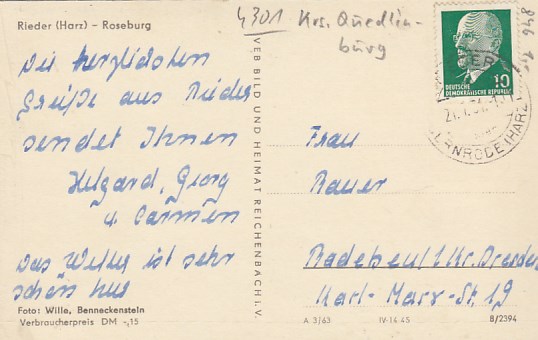 Rieder (Harz) – Roseburg
4301 Krs. Quedlin-
burg
Die herzlichsten
Grüße aus Rieder
sendet Ihnen
Helgard, Georg
u. Carmen
Das Wetter ist sehr
schön hier
Foto: Wille, Benneckenstein
Verbraucherpreis DM -,15
VEB BILD UND HEIMAT REICHENBACH i. V.
10
DEUTSCHE
DEMOKRATISCHE REPUBLIK
RNRODE (HARZ
Frau
Bauer
Radebeul 1 Kr. Dresden
Karl-Marx-St. 19
A 3/63 IV-14-45 B/2394